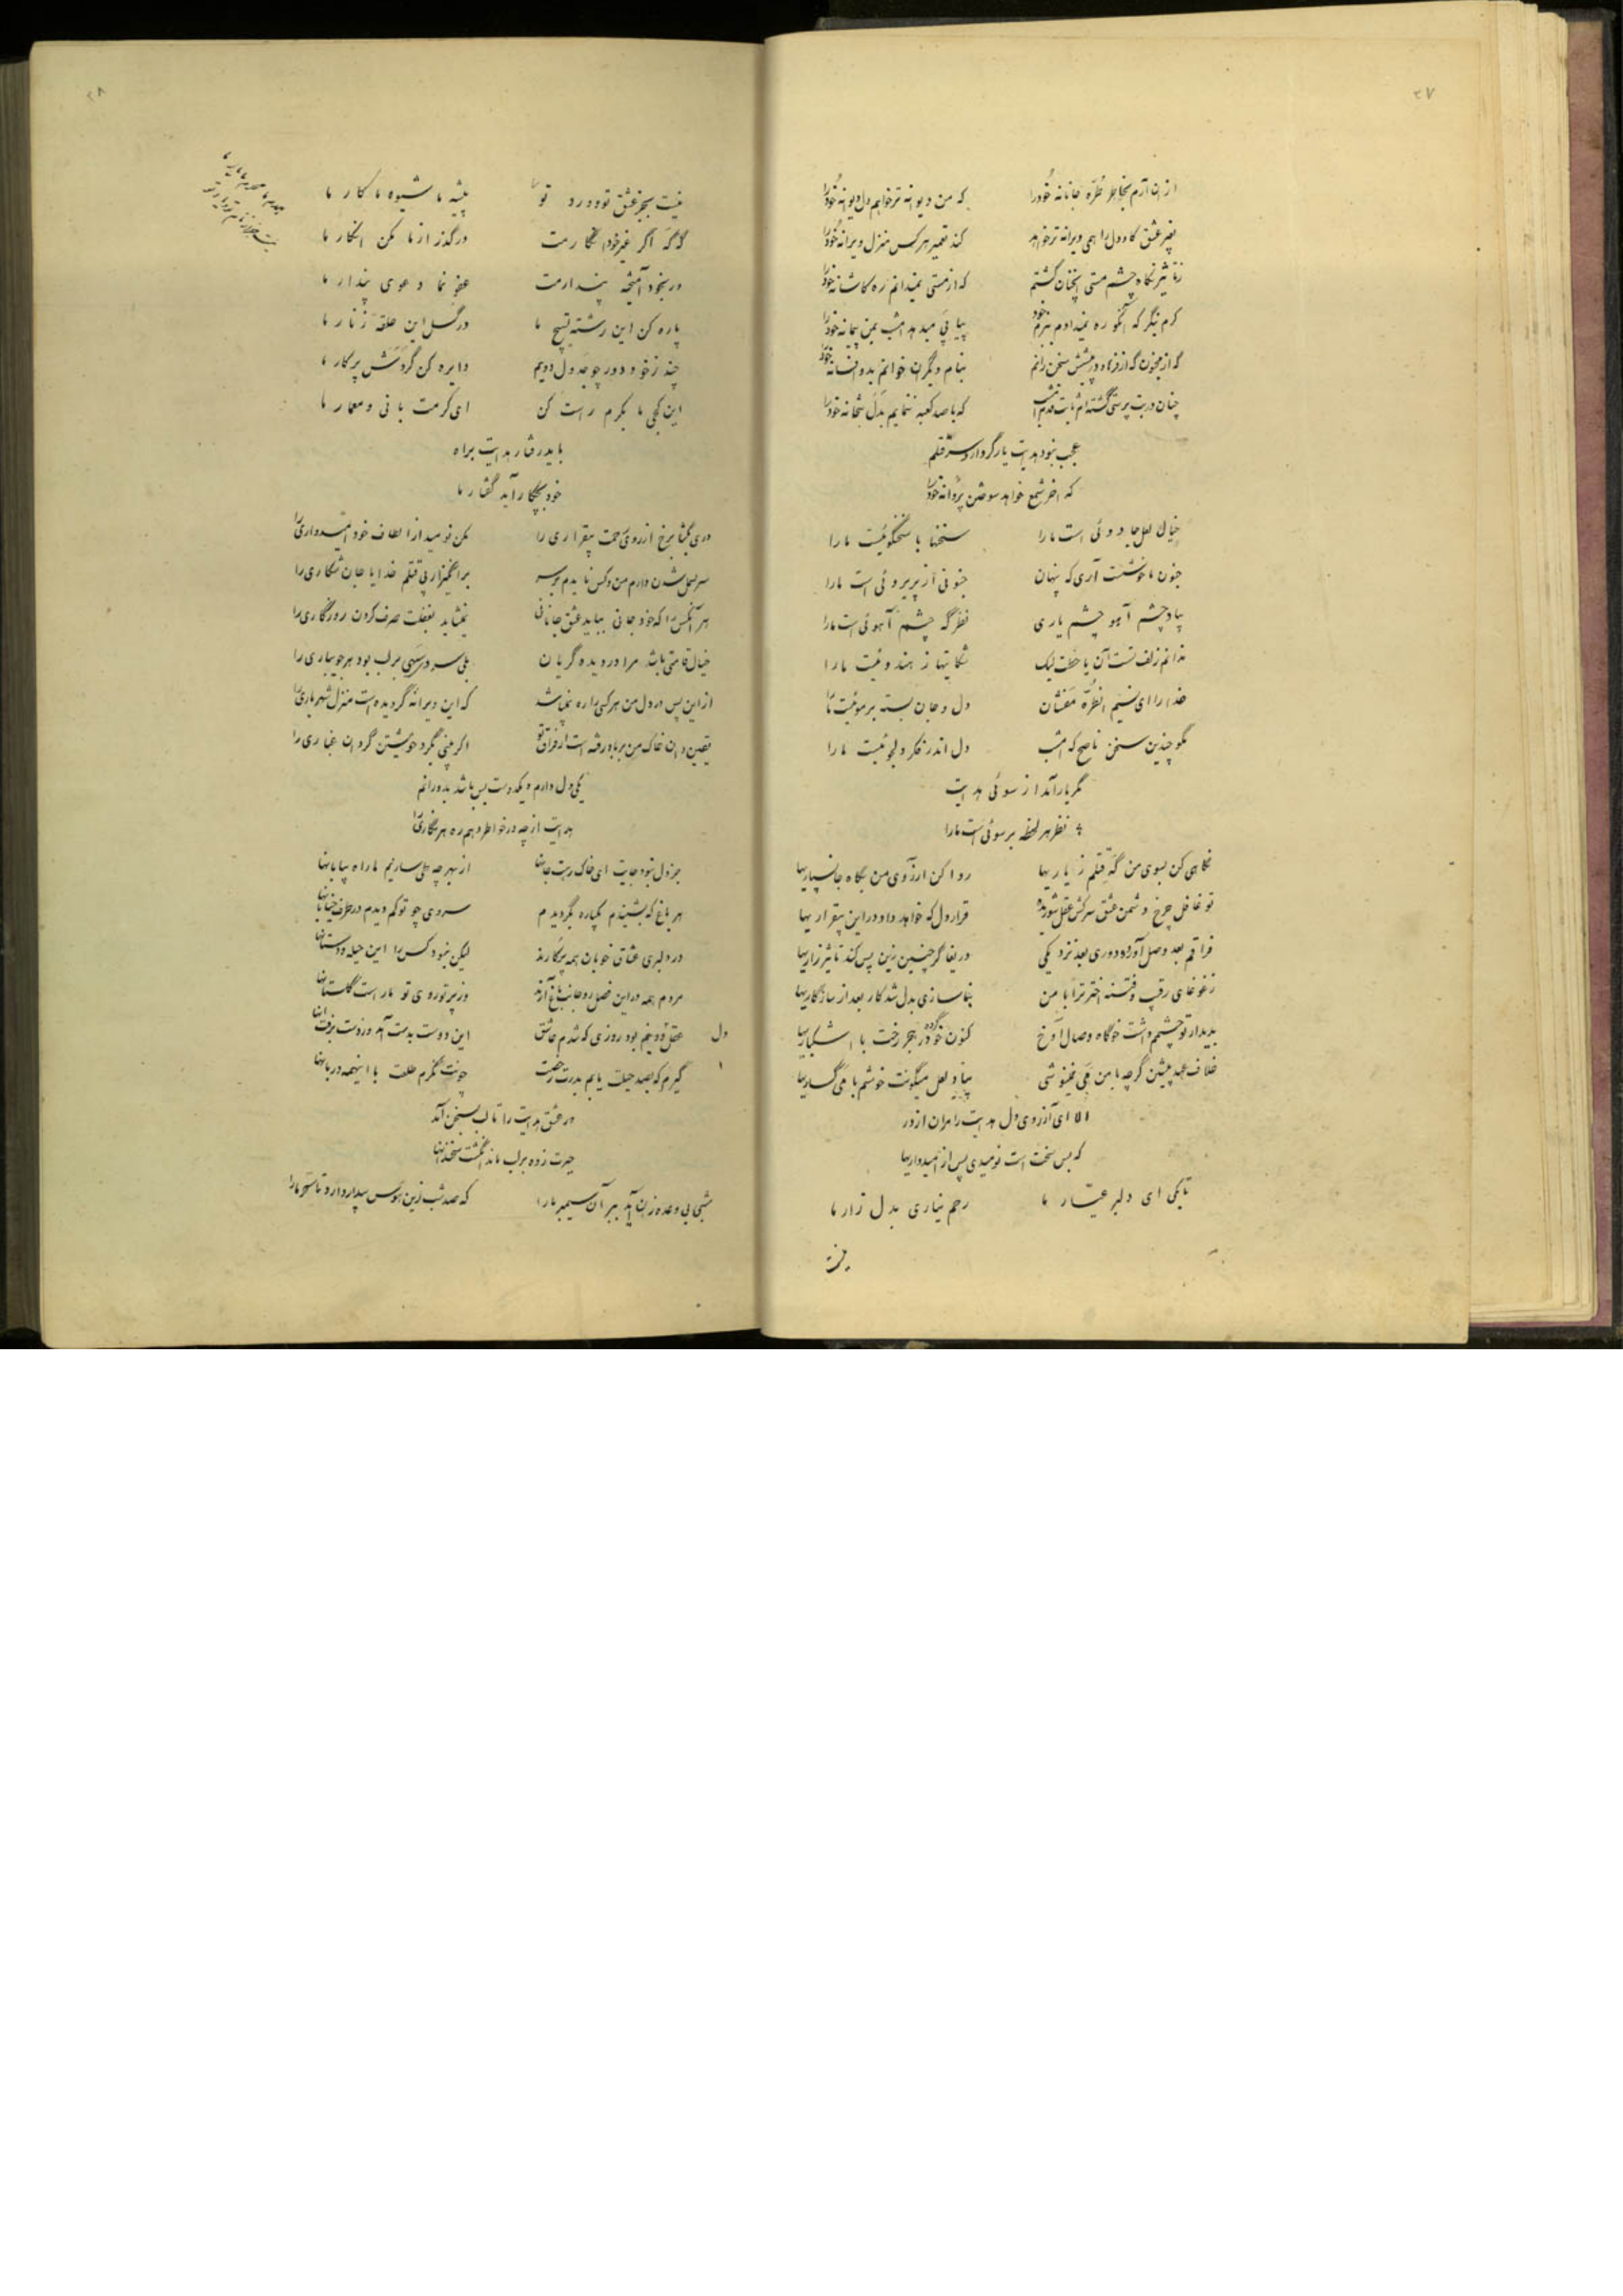 ۲۷
از ان آرم بخاطر طرّه جانانه خود را که من دیوانه تر خواهم دل دیوانه خود را
بغیر عشق کاو دل را همی ویرانه تر خواهد کند تعمیر هر کس منزل ویرانه خود را
زتاثیر نگاه چشم مستی آنچنان گشتم که از مستی نمیدانم ره کاشانه خود را
کرم بنگر که آنکو ره نمیدادم ببزم خود پیاپی میدهد امشب بمن پیمانه خود را
که از مجنون که از فرهاد در پیشش سخن رانم بنام دیگران خوانم بدو افسانه خود را
چنان در بت پرستی گشته ام ثابت قدم امشب که با صد کعبه ننمایم بدل بتخانه خود را
عجب نبود هدایت یار گر دارد سر قتلم
که آخر شمع خواهد سوختن پروانه خود را
خیال لعل جادوئی است ما را سخنها با سخنگوئیست ما را
جنون ما خوشست آری که پنهان جنونی از پریروئی است ما را
بیاد چشم آهو چشم یاری نظر گه چشم آهوئی است ما را
ندانم زلف تست آن یا خطت لیک شکایتها ز هندوئیست ما را
خدا را ای نسیم آن طرّه مفشان دل و جان بسته بر موئیست ما را
مگو چندین سخن ناصح که امشب دل اندر فکر دلجوئیست ما را
مگر یار آمد از سوئی هدایت
نظر هر لحظه بر سوئی است ما را
نگاهی کن بسوی من گه قتلم ز یاریها روا کن آرزوی من بگاه جانسپاریها
تو غافل چرخ دشمن عشق سرکش عقل شوریده قرار دل که خواهد داد در این بیقراریها
فراقم بعد وصل آورد و دوری بعد نزدیکی دریغا گر چنین زین پس کند تاثیر زاریها
ز غوغای رقیب و فتنه اختر ترا با من بناسازی بدل شد کار بعد از سازگاریها
بدیدار تو چشمم داشت خو گاه وصال آوخ کنون خو کرده در هجر رخت با اشکباریها
خلاف عهد پیشین گرچه با من می نمینوشی بیاد لعل میگونت خوشم با میگساریها
الا ای آرزوی دل هدایت را مران از در
که بس سخت است نومیدی پس از امیدواریها
تا بکی ای دلبر عیّار ما رحم نیاری بدل زار ما
نیست
۲۸
نیست بجز عشق تو و درد تو پیشه ما شیوه ما کار ما
گر که اگر غیر خود انگارمت درگذر از ما مکن انکار ما
ور بخود آمیخته پندارمت عفو نما دعوی پندار ما
پاره کن این رشته تسبیح ما درگسل این حلقه زنّار ما
چند ز خود دور چو جدول دویم دایره کن گردش پرگار ما
این کجی ما بکرم راست کن ای کرمت بانی و معمار ما
باید رفتار هدایت براه
خود بچکار آید گفتار ما
دری بگشا برخ از روی رحمت بیقراری را مکن نومید از الطاف خود امیدواری را
سر بسمل شدن دارم من و کس نایدم بر سر برانگیز از پی قتلم خدایا جان شکاری را
هر آنکس را که خود جانی بباید عشق جانانی نمیشاید بغفلت صرف کردن روزگاری را
خیال قامتی باشد مرا در دیده گریان بلی سرو سهی بر لب بود هر جویباری را
از این پس در دل من هر کسی را ره نمیباشد که این ویرانه گردیده است منزل شهریاری را
یقین دان خاک من بر باد رفته است از فراق تو اگر بینی بگرد خویشتن گردان غباری را
یکی دل دارم و یکدوست بس باشد بدورانم
هدایت از چه در خاطر دهم ره هر نگاری را
جز دل نبود جایت ای خاک رهت جانها از بهر چه بسپاریم ما راه بیابانها
هر باغ که بشنیدم یکباره بگردیدم سروی چو تو کم دیدم در طرف خیابانها
در دلبری عشاق خوبان همه پرکارند لیکن نبود کس را این حیله و دستانها
مردم همه در این فصل رو جانب باغ آرند وز پرتو روی تو ما راست گلستانها
دل عقل و دینم بود روزی که شدم عاشق این دوست بدست آمد وز دست برفت آنها
گیرم که بصد حیلت یابم بدرت رخصت چونت نگرم طلعت با اینهمه دربانها
در عشق هدایت را تا لب بسخن آمد
حیرت زده بر لب ماند انگشت سخندانها
شبی بی وعده زان آید ببر آن سیمبر ما را که صد شب زین هوس بیدار دارد تا سحر ما را